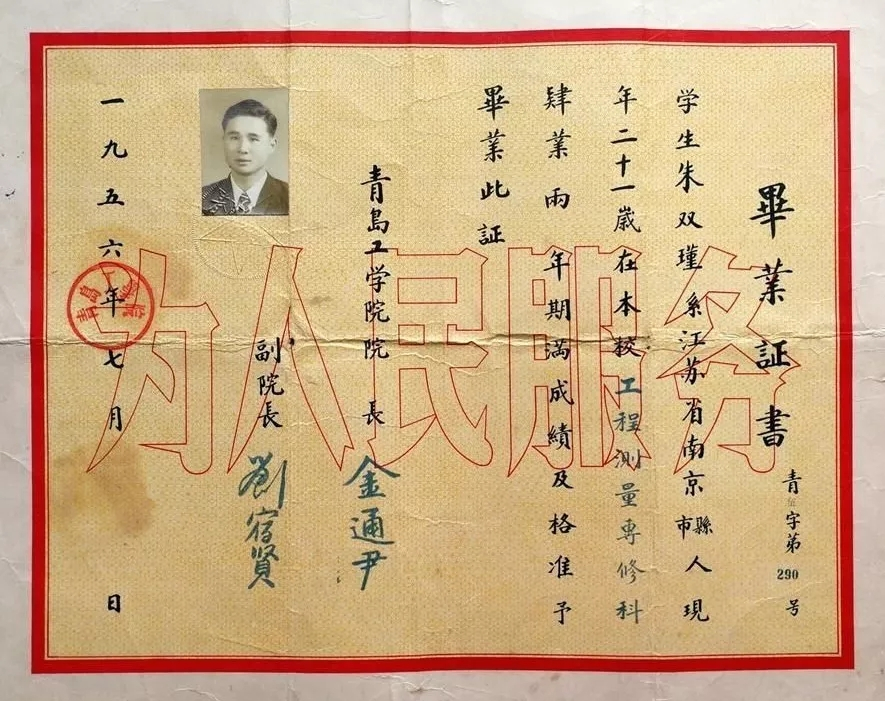 畢業証书
青 字第290号
学生朱双瑾系江苏省南京市縣人現
年二十一歲在本校工程测量專修科
肄業兩年期満成績及格准予
畢業此証
青島工学院院長 金通尹
副院長 劉宿贤
一九五六年七月 日
为人民服务